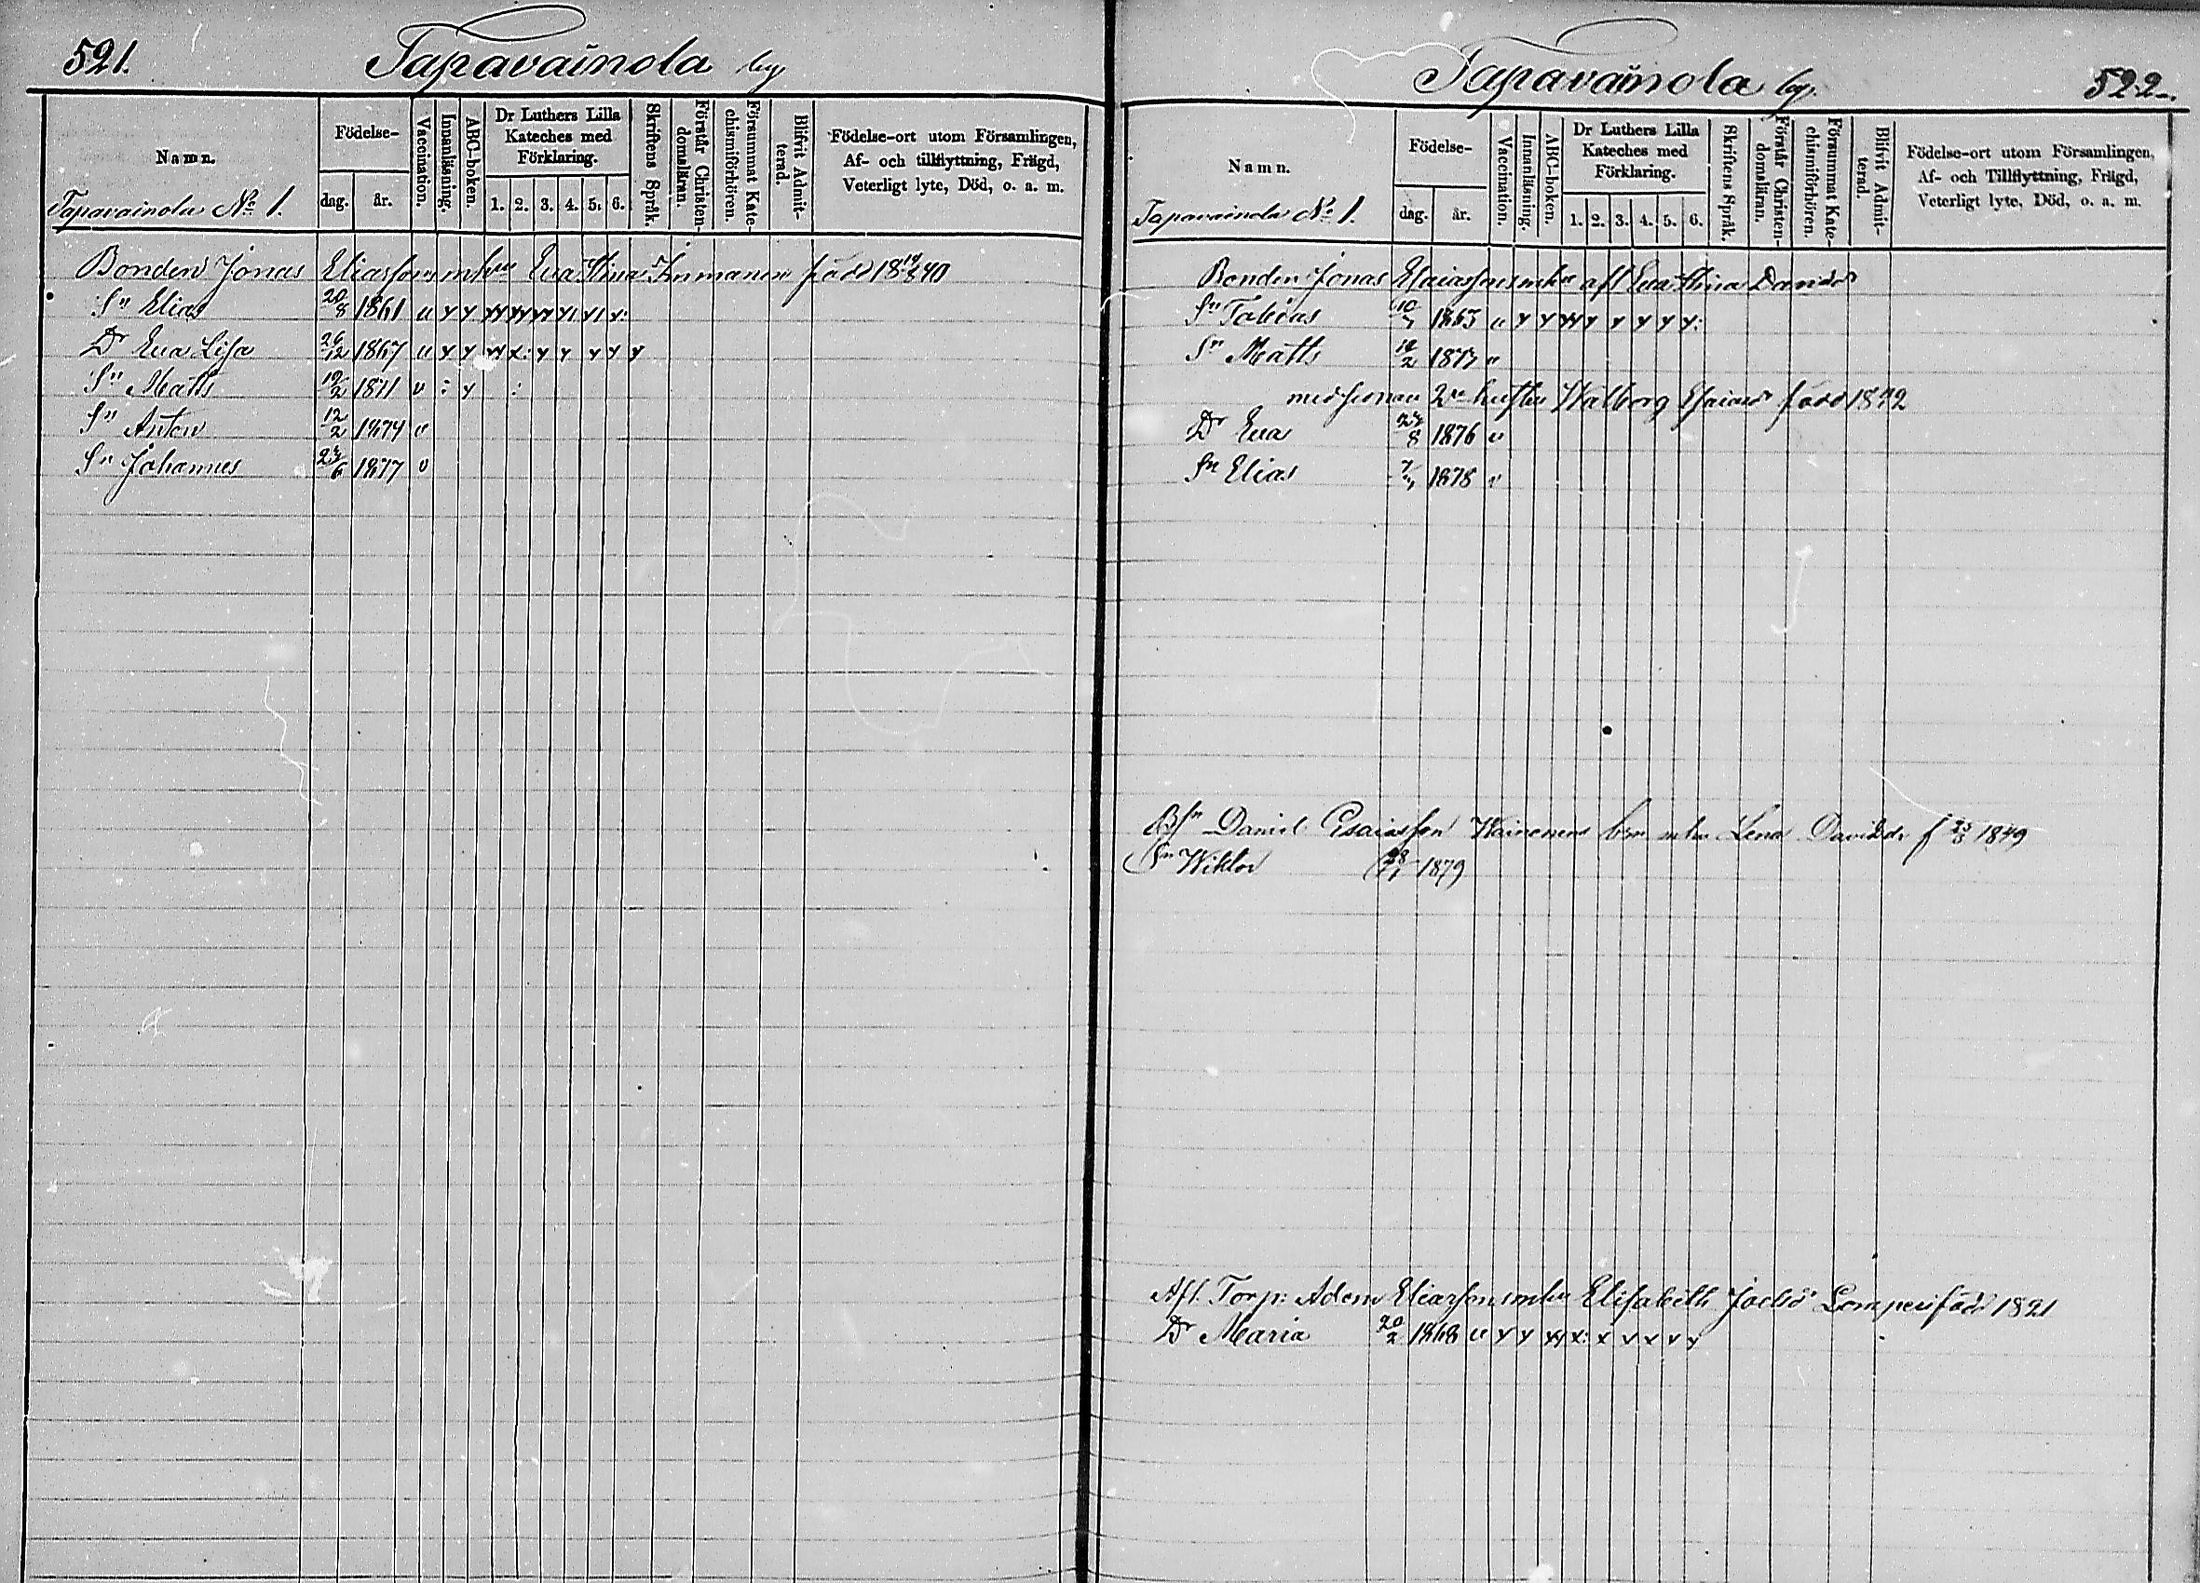 521. Tapavainola by
Namn.
Födelse-
dag. år.
Vaccination.
Innanläsning.
ABC-boken.
Dr Luthers Lilla Kateches med Förklaring.
1. 2. 3. 4. 5. 6.
Skriftens Språk.
Förstår Christen-domsläran.
Försummat Kate-chismiförhören.
Blifvit Admit-terad.
Födelse-ort utom Församlingen,
Af- och tillflyttning, Frägd,
Veterligt lyte, Död, o. a. m.
Tapavainola No 1.
Bonden Jonas Eliasson m hu Eva Stina Inmanen född 18 14/2 40
Sn Elias 20/8 1861 v x x
Dr Eva Lisa 26/12 1867 v x x
Sn Matts 19/2 1871 v : x :
Sn Anton 12/2 1874 v
Sn Johannes 24/6 1877 v
Tapavainola by. 522.
Namn.
Födelse-
dag. år.
Vaccination.
Innanläsning.
ABC-boken.
Dr Luthers Lilla Kateches med Förklaring.
1. 2. 3. 4. 5. 6.
Skriftens Språk.
Förstår Christen-domsläran.
Försummat Kate-chismiförhören.
Blifvit Admit-terad.
Födelse-ort utom Församlingen,
Af- och Tillflyttning, Frägd,
Veterligt lyte, Död, o. a. m.
Tapavainola No 1.
Bonden Jonas Esaiasson m hu afl Eva Stina Davidsdr
Sn Tobias 10/7 1865 v x x
Sn Matts 12/2 1877 v
med sonen 2dra hustru Walborg Esaiasdr född 1842
Dr Eva 24/8 1876 v
Sn Elias 1878 v
Bsn Daniel Esaiasson Wainonen m hu Lena Davidsdr f 25/3 1849
Sn Wiktor 1879
Afl. Torp: Adam Eliasson m hu Elisabeth Joelsdr Lemperi född 1821
Dr Maria 20/2 1868 v x x